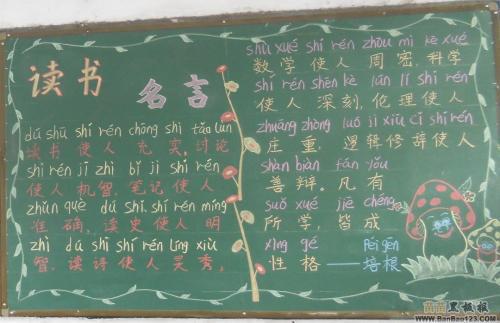 读书
名言
dú shū shǐ rén chōng shí tǎo lùn
读书使人充实,讨论
shǐ rén jī zhì bǐ jì shǐ rén
使人机智,笔记使人
zhǔn què dú shǐ shǐ rén míng
准确,读史使人明
zhì dú shī shǐ rén líng xiù
智,读诗使人灵秀,
shù xué shǐ rén zhōu mì kē xué
数学使人周密,科学
shǐ rén shēn kè lún lǐ shǐ rén
使人深刻,伦理使人
zhuāng zhòng luó jí xiū cí shǐ rén
庄重,逻辑修辞使人
shàn biàn fán yǒu
善辩。凡有
suǒ xué jiē chéng
所学,皆成
xìng gé péi gēn
性格——培根
苗苗黑板报
www.BanBao123.com